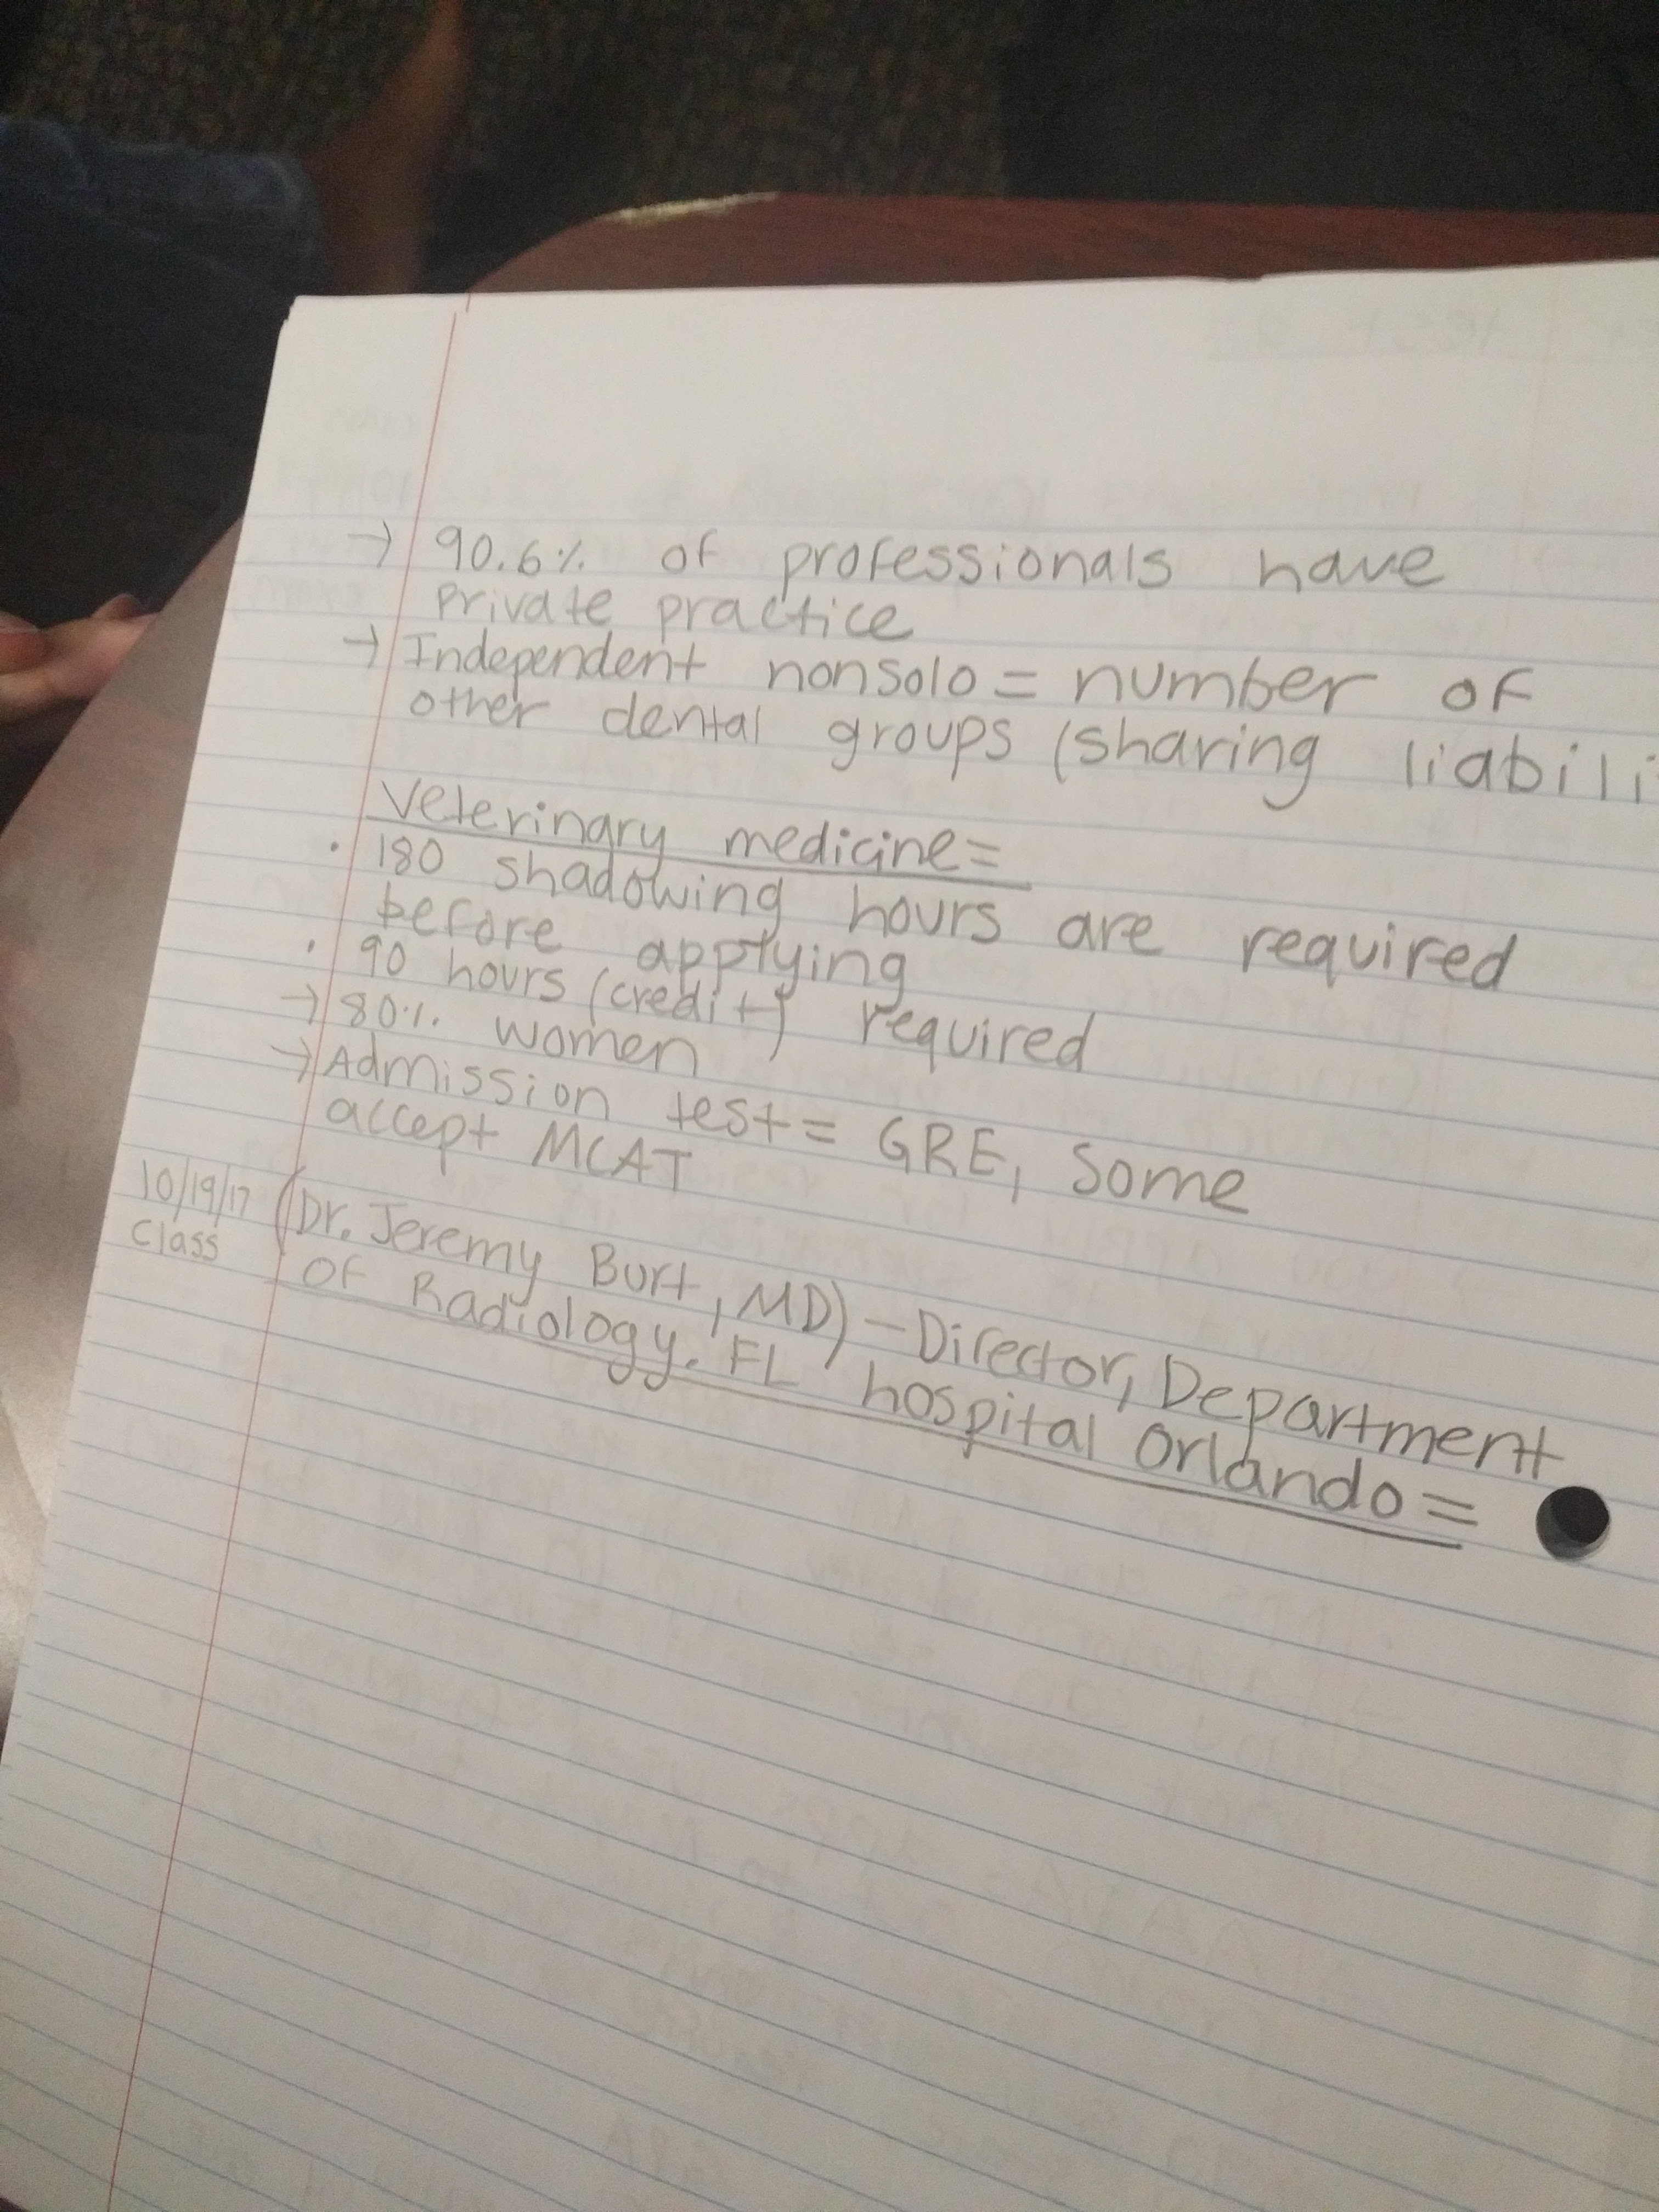 → 90.6% of professionals have
private practice
→ Independent nonsolo = number of
other dental groups (sharing liabili
Veterinary medicine=
• 180 shadowing hours are required
before applying
• 90 hours (credit) required
→ 80% women
→ Admission test = GRE, some
accept MCAT
10/19/17 (Dr. Jeremy Burt, MD) - Director, Department
class of Radiology. FL hospital Orlando =